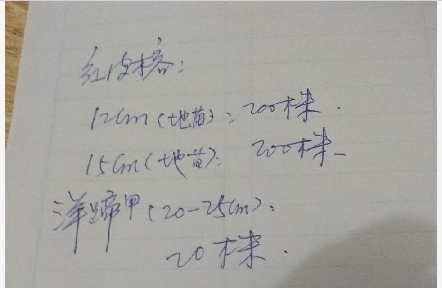 红皮榕：
12cm（地苗）：200株.
15cm（地苗）：200株
洋蹄甲（20-25cm）：
20株.